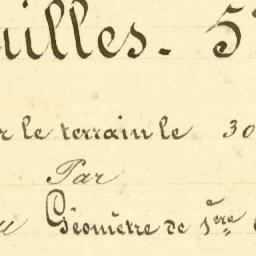 uilles. 5
r le terrain le 30
Par
u Géomètre de 1ère